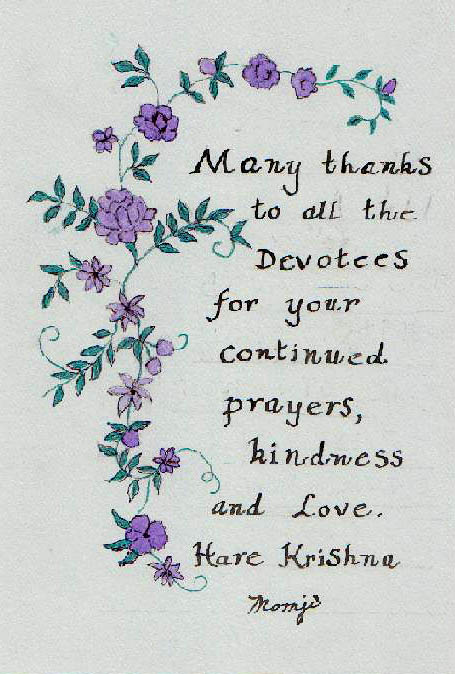 Many thanks
to all the
Devotees
for your
continued
prayers,
kindness
and Love.
Hare Krishna
Momji